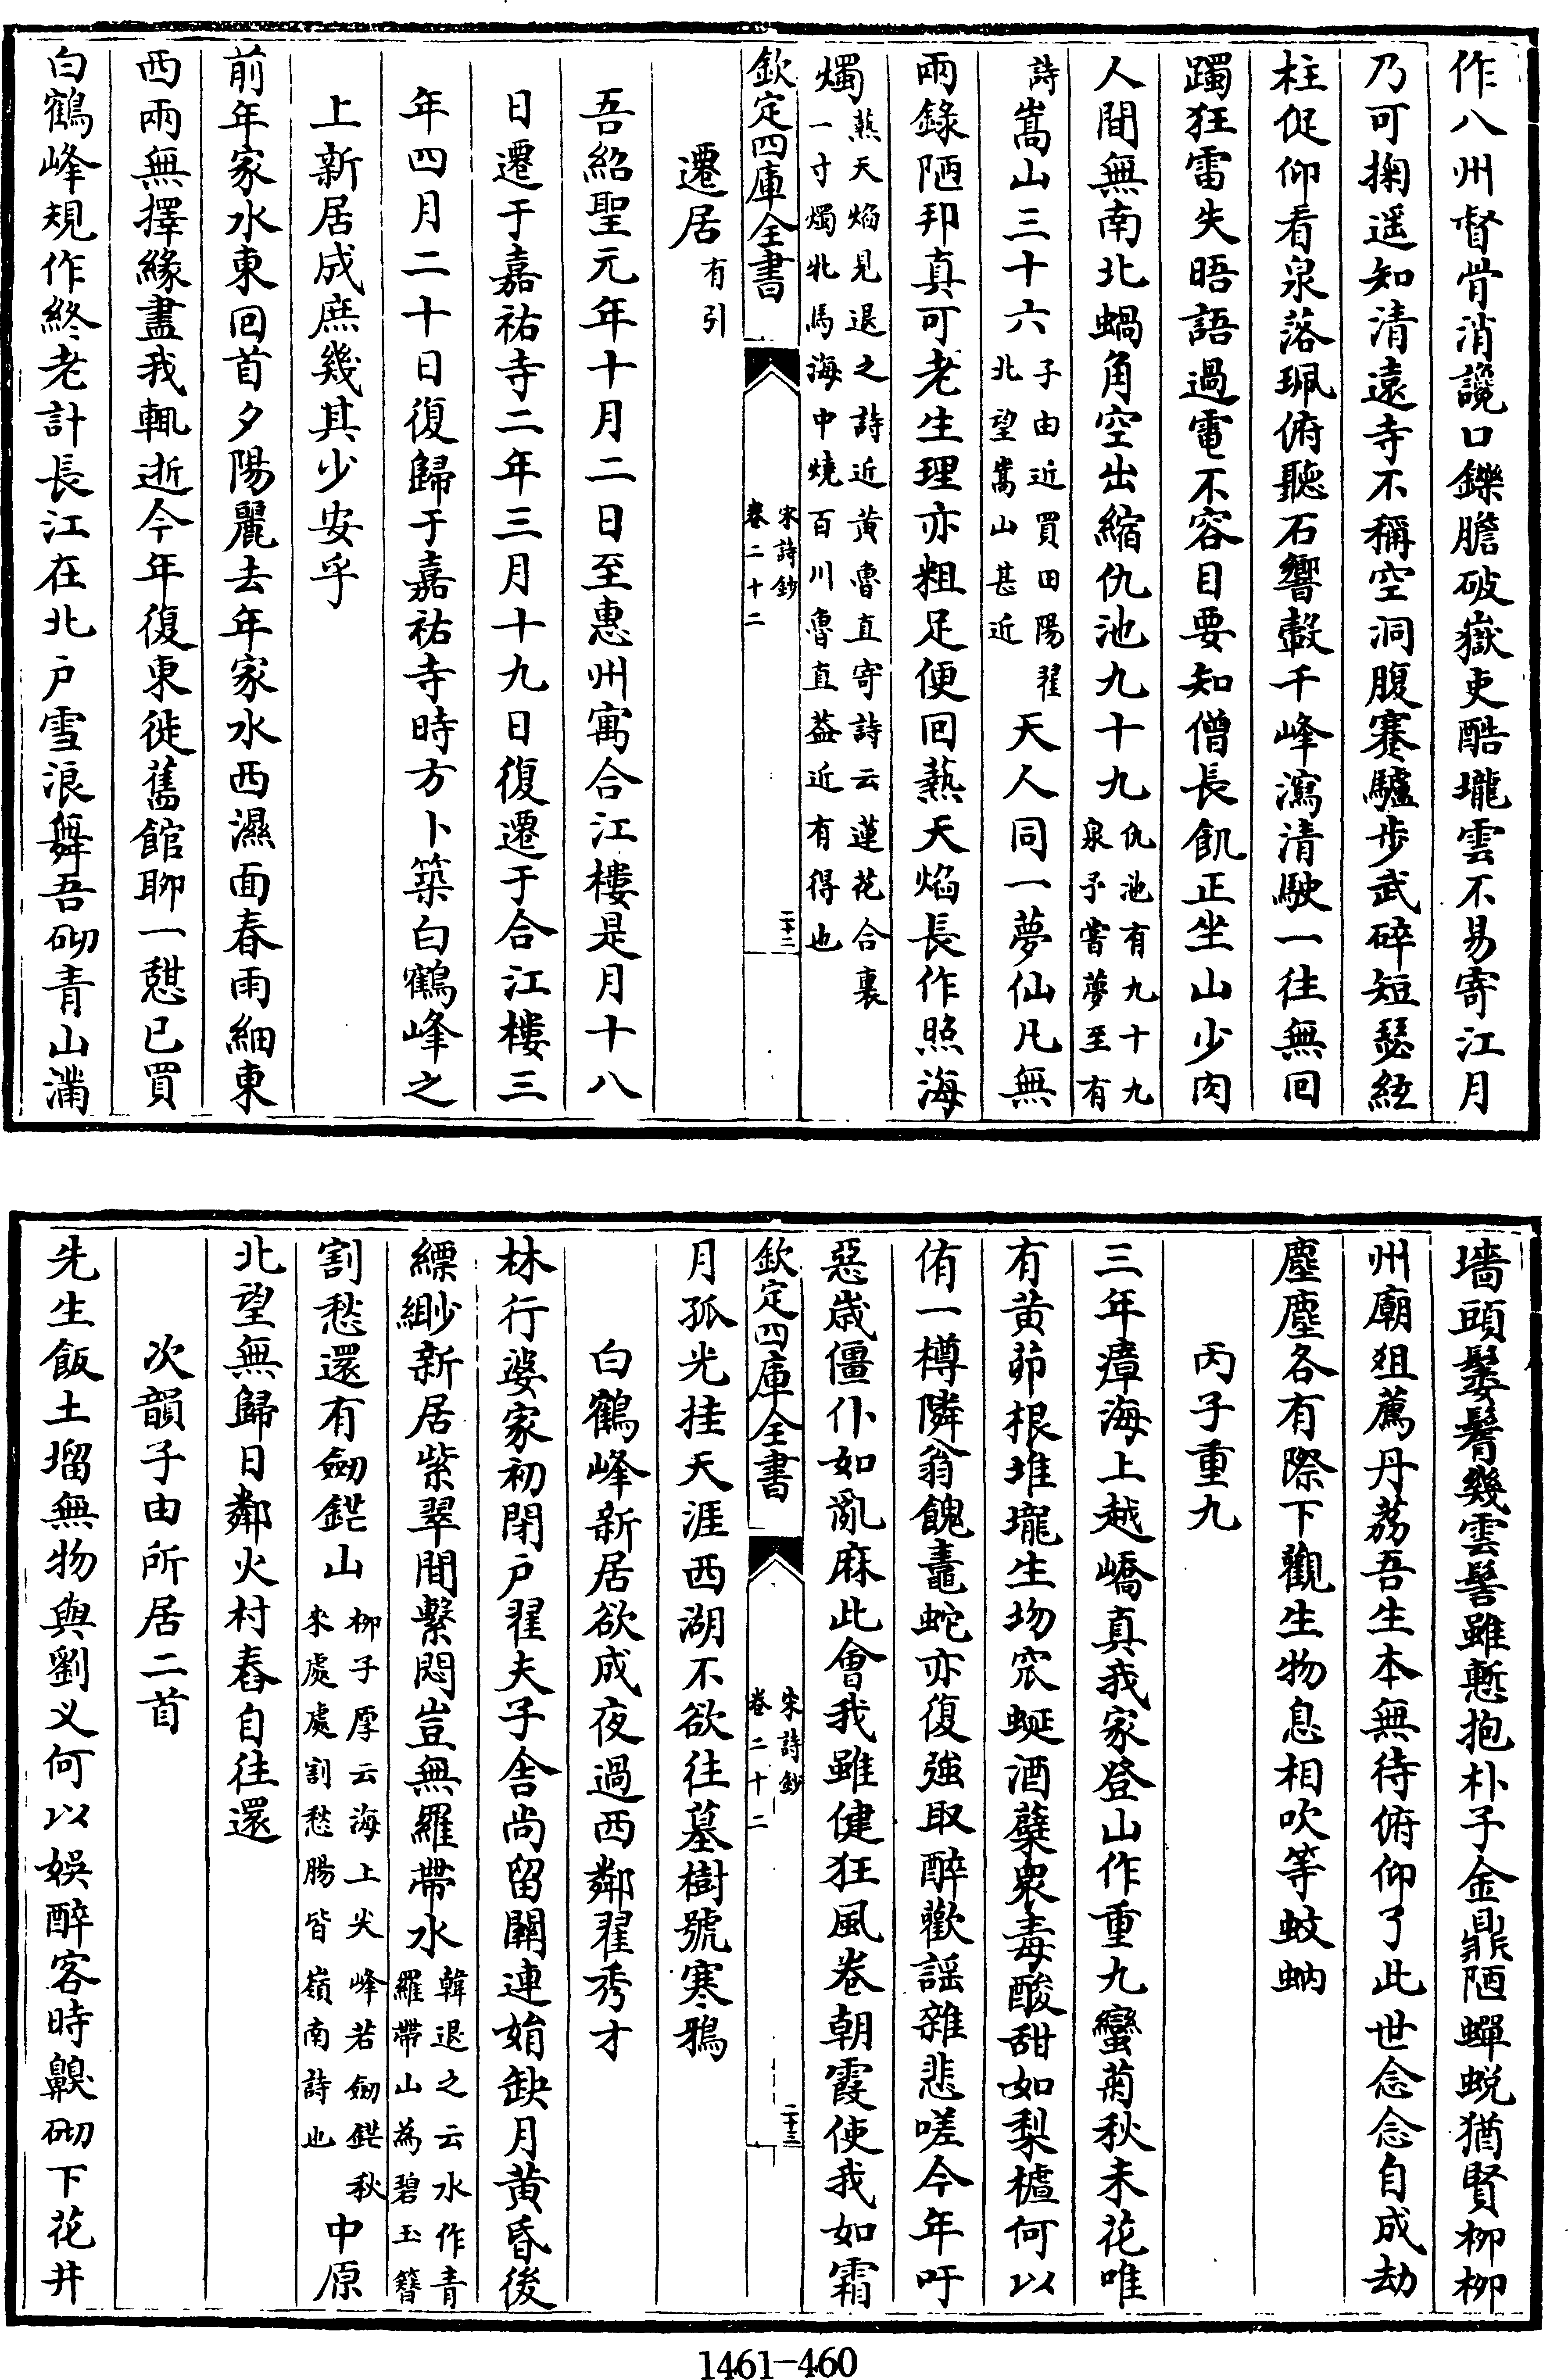 作八州督骨消讒口鑠膽破嶽吏酷壠雲不易寄江月
乃可掬遥知清遠寺不稱空洞腹蹇驢步武碎短瑟絃
柱促仰看泉落珮俯聽石響轂千峰瀉清駛一往無回
躅狂雷失晤語過電不容目要知僧長飢正坐山少肉
人間無南北蝸角空出縮仇池九十九仇池有九十九泉予嘗夢至有
詩嵩山三十六子由近買田陽翟北望嵩山甚近天人同一夢仙凡無
兩錄陋邦真可老生理亦粗足便回爇天焰長作照海
燭爇天焰見退之詩近黄魯直寄詩云蓮花合裏一寸燭牝馬海中燒百川魯直葢近有得也
欽定四庫全書 宋詩鈔卷二十二 二十二
遷居有引
吾紹聖元年十月二日至惠州寓合江樓是月十八
日遷于嘉祐寺二年三月十九日復遷于合江樓三
年四月二十日復歸于嘉祐寺時方卜築白鶴峰之
上新居成庶幾其少安乎
前年家水東回首夕陽麗去年家水西濕面春雨細東
西兩無擇緣盡我輒逝今年復東徙舊館聊一憇已買
白鶴峰規作終老計長江在北户雪浪舞吾砌青山滿
墻頭鬖髾幾雲髻雖慙抱朴子金鼎陋蟬蜕猶賢柳柳
州廟俎薦丹荔吾生本無待俯仰了此世念念自成劫
塵塵各有際下觀生物息相吹等蚊蚋
丙子重九
三年瘴海上越嶠真我家登山作重九蠻菊秋未花唯
有黄茆根堆壠生坳窊蜒酒蘖衆毒酸甜如梨樝何以
侑一樽隣翁餽鼃蛇亦復強取醉歡謡雜悲嗟今年吁
惡歲僵仆如亂麻此會我雖健狂風卷朝霞使我如霜
欽定四庫全書 宋詩鈔卷二十二 二十三
月孤光挂天涯西湖不欲往墓樹號寒鴉
白鶴峰新居欲成夜過西鄰翟秀才
林行婆家初閉户翟夫子舍尚留闗連娟缺月黄昏後
縹緲新居紫翠間繫悶豈無羅帶水韓退之云水作青羅帶山為碧玉簪
割愁還有劒鋩山柳子厚云海上尖峰若劒鋩秋來處處割愁腸皆嶺南詩也中原
北望無歸日鄰火村舂自往還
次韻子由所居二首
先生飯土塯無物與劉乂何以娛醉客時齅砌下花井
1461-460